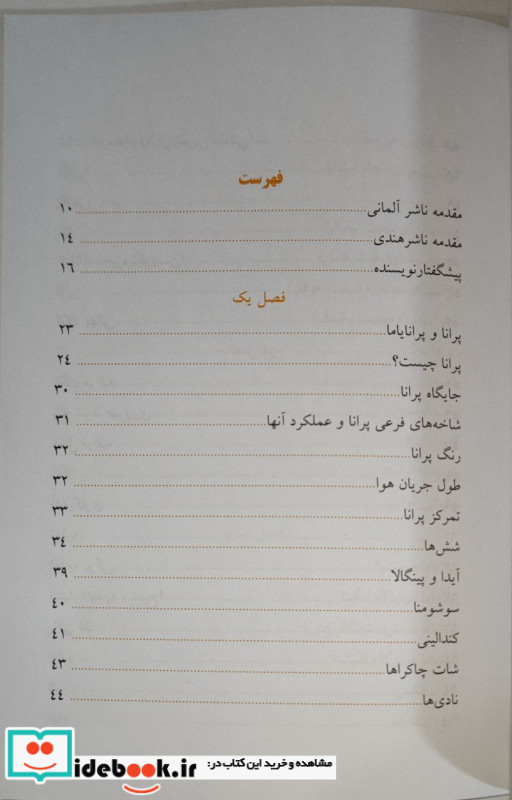 فهرست
مقدمه ناشر آلمانی ........ ۱۰
مقدمه ناشر هندی ........ ۱۴
پیشگفتار نویسنده ........ ۱۶
فصل یک
پرانا و پرانایاما ........ ۲۳
پرانا چیست؟ ........ ۲۴
جایگاه پرانا ........ ۳۰
شاخه‌های فرعی پرانا و عملکرد آنها ........ ۳۱
رنگ پرانا ........ ۳۲
طول جریان هوا ........ ۳۲
تمرکز پرانا ........ ۳۳
شش‌ها ........ ۳۴
آیدا و پینگالا ........ ۳۹
سوشومنا ........ ۴۰
کندالینی ........ ۴۱
شات چاکراها ........ ۴۳
نادی‌ها ........ ۴۴
مشاهده و خرید این کتاب در:
idebook.ir